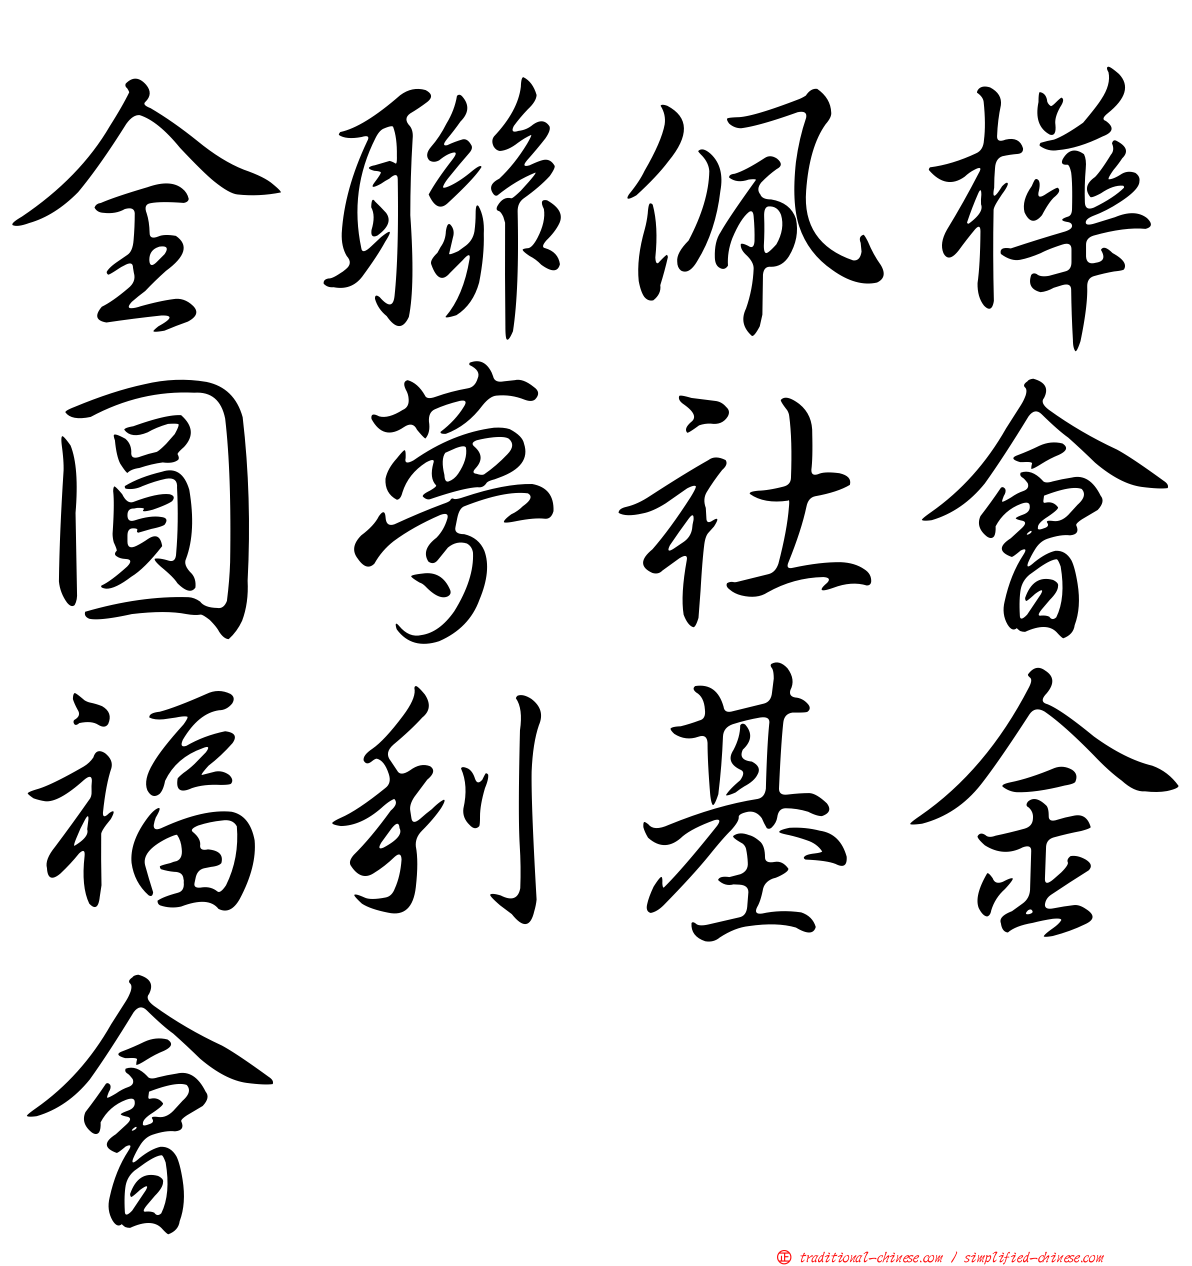 全聯佩樺
圓夢社會
福利基金
會
正 traditional-chinese.com / simplified-chinese.com